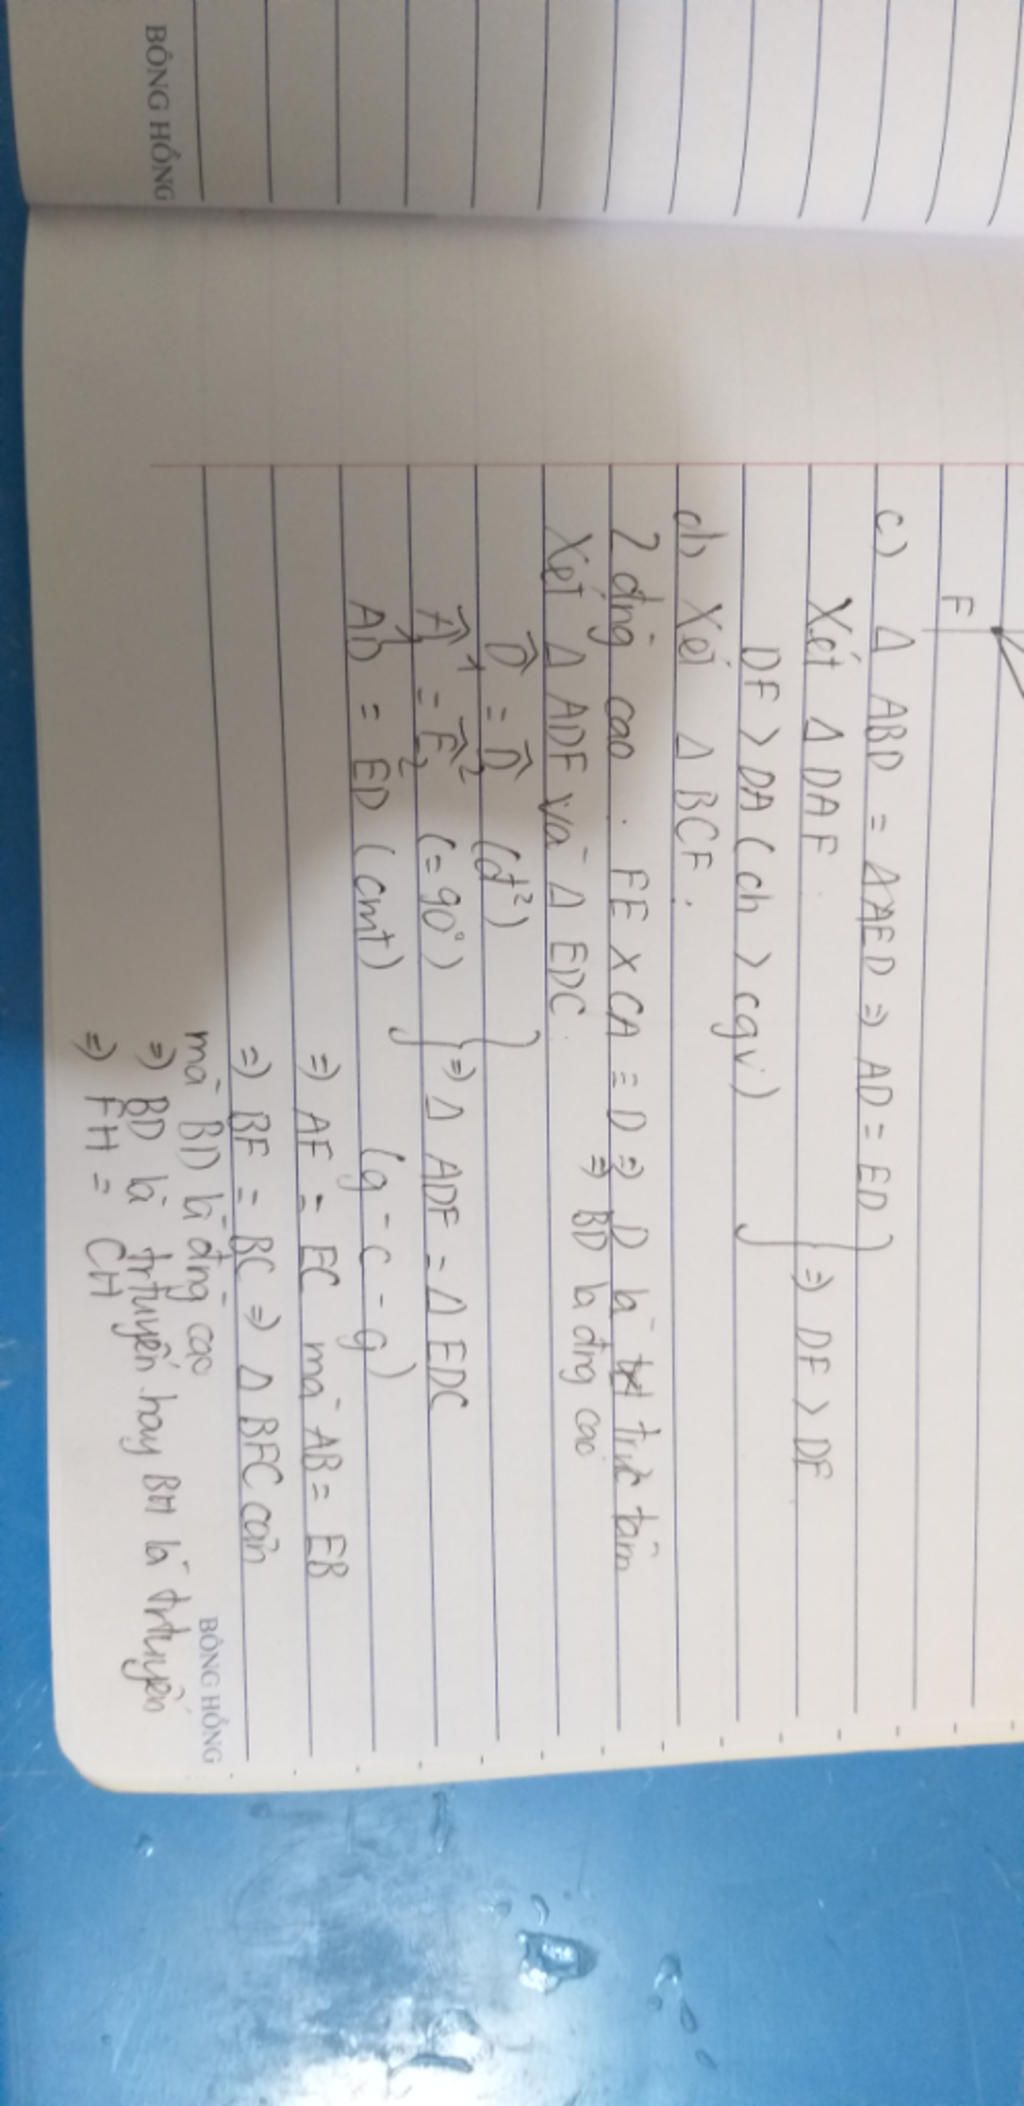 BÔNG HỒNG
F
c) Δ ABD = ΔAED ⇒ AD = ED
Xét Δ DAF
⇒ DF > DF
DF > DA (ch > cgv)
d) Xét Δ BCF.
2 đng cao : FE × CA = D ⇒ D là trực tâm
⇒ BD là đng cao
Xét Δ ADF và Δ EDC
D̂1 = D̂2 (đ²)
Â1 = Ê2 (= 90°)
⇒ Δ ADF = Δ EDC
AD = ED (cmt)
(g - c - g)
⇒ AF = EC mà AB = EB
⇒ BF = BC ⇒ Δ BFC cân
mà BD là đng cao
⇒ BD là trtuyến hay BH là trtuyến
⇒ FH = CH
BÔNG HỒNG